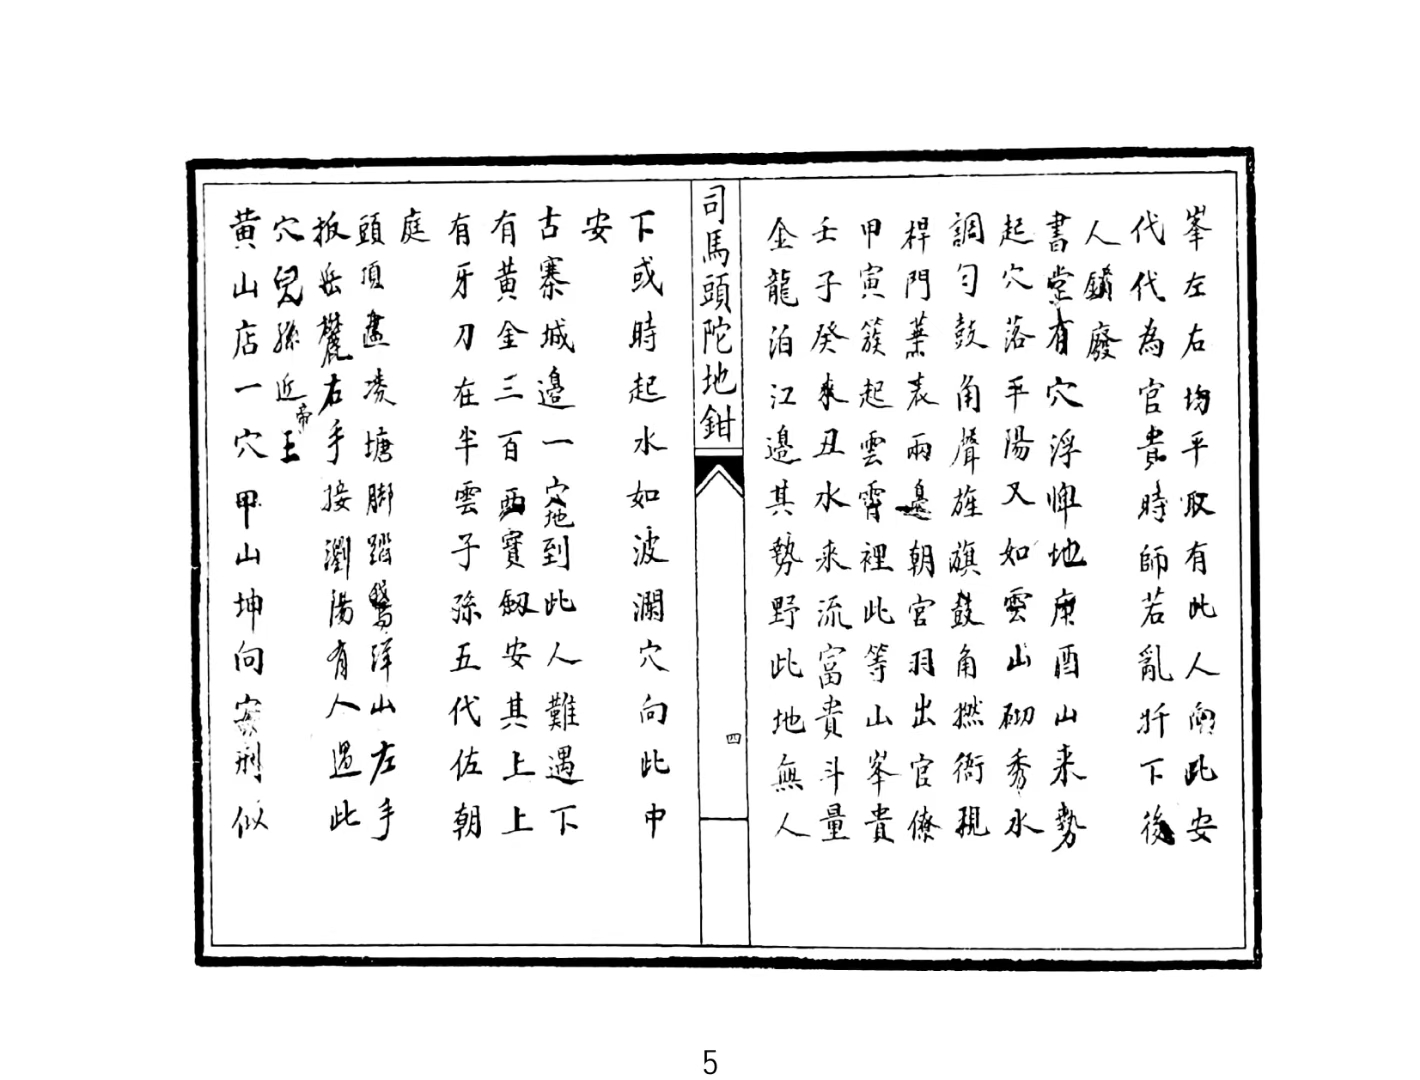 峯左右均平取有此人向此安
代代為官貴時師若亂扦下後
人鏽廢
書堂有穴浮牌地庚酉山来勢
起穴落平陽又如雲山砌秀水
調勻鼓角聲旌旗鼓角撚衙親
桿門葉表兩邊朝宮羽出官僚
甲寅簇起雲霄裡此等山峯貴
壬子癸来丑水来流富貴斗量
金龍泊江邉其勢野此地無人
司馬頭陀地鉗
四
下或時起水如波瀾穴向此中
安
古寨城邉一穴地到此人難遇下
有黄金三百両寳劔安其上上
有牙刀在半雲子孫五代佐朝
庭
頭頂盡凌塘脚踏鵞洋山左手
扳岳麓右手接瀏陽有人遇此
穴兒孫近帝王
黄山店一穴甲山坤向安刑似
5